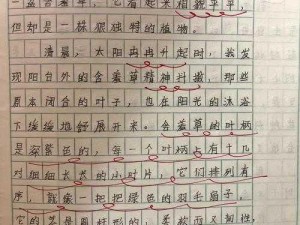 一盆含羞草，它看起来相貌平平，
但却是一株很独特的植物。
清晨，太阳冉冉升起时，我发
现阳台外的含羞草精神抖擞，那些
原本闭合的叶子，也在阳光的沐浴
下缓缓地舒展开来。含羞草的叶柄
是深紫色的，每一个叶柄占有十几
对细细长长的小叶片，它们排列有
序，就像一把把绿色的羽毛扇子，
它的茎是圆柱形的，柔软而又韧性，